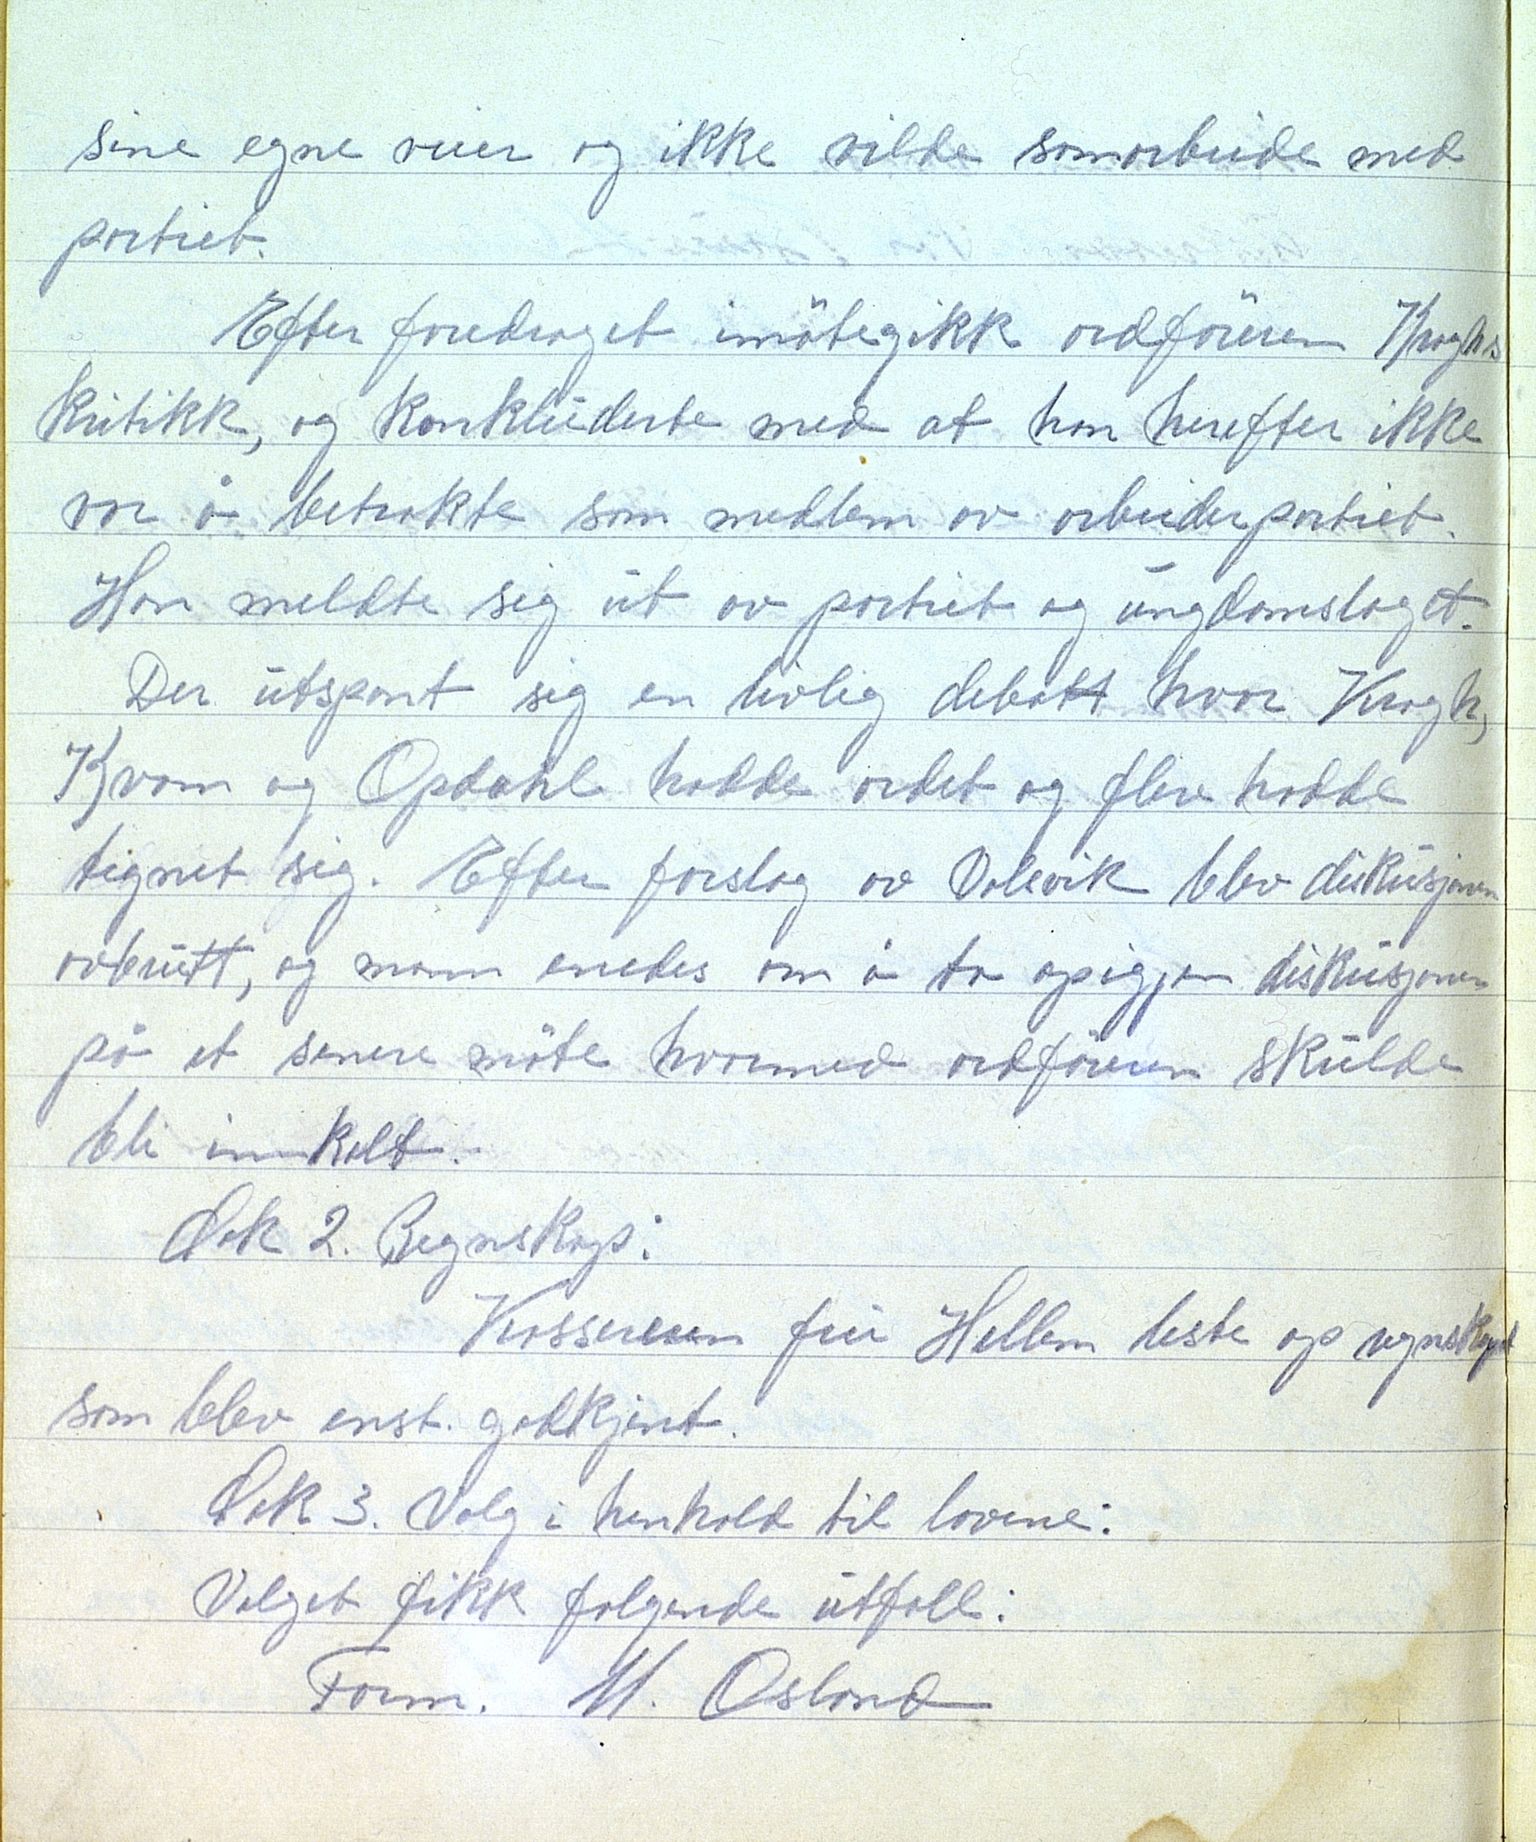 sine egne veier og ikke vilde samarbeide med
partiet.
Efter foredraget imøtegikk ordføreren Kraghs
kritikk, og konkluderte med at han herefter ikke
var å betrakte som medlem av arbeiderpartiet.
Han meldte sig ut av partiet og ungdomslaget.
Der utspant sig en livlig debatt hvor Kragh,
Kvam og Opdahl hadde ordet og flere hadde
tegnet sig. Efter forslag av Valevik blev diskusjonen
avbrutt, og mann enedes om å ta op igjen diskusjonen
på et senere møte hvormed ordføreren skulde
bli innkalt.
Sak 2. Regnskap:
Kassereren fru Hellem leste op regnskapet
som blev enst. godkjent.
Sak 3. Valg i henhold til lovene:
Valget fikk følgende utfall:
Form. M. Osland